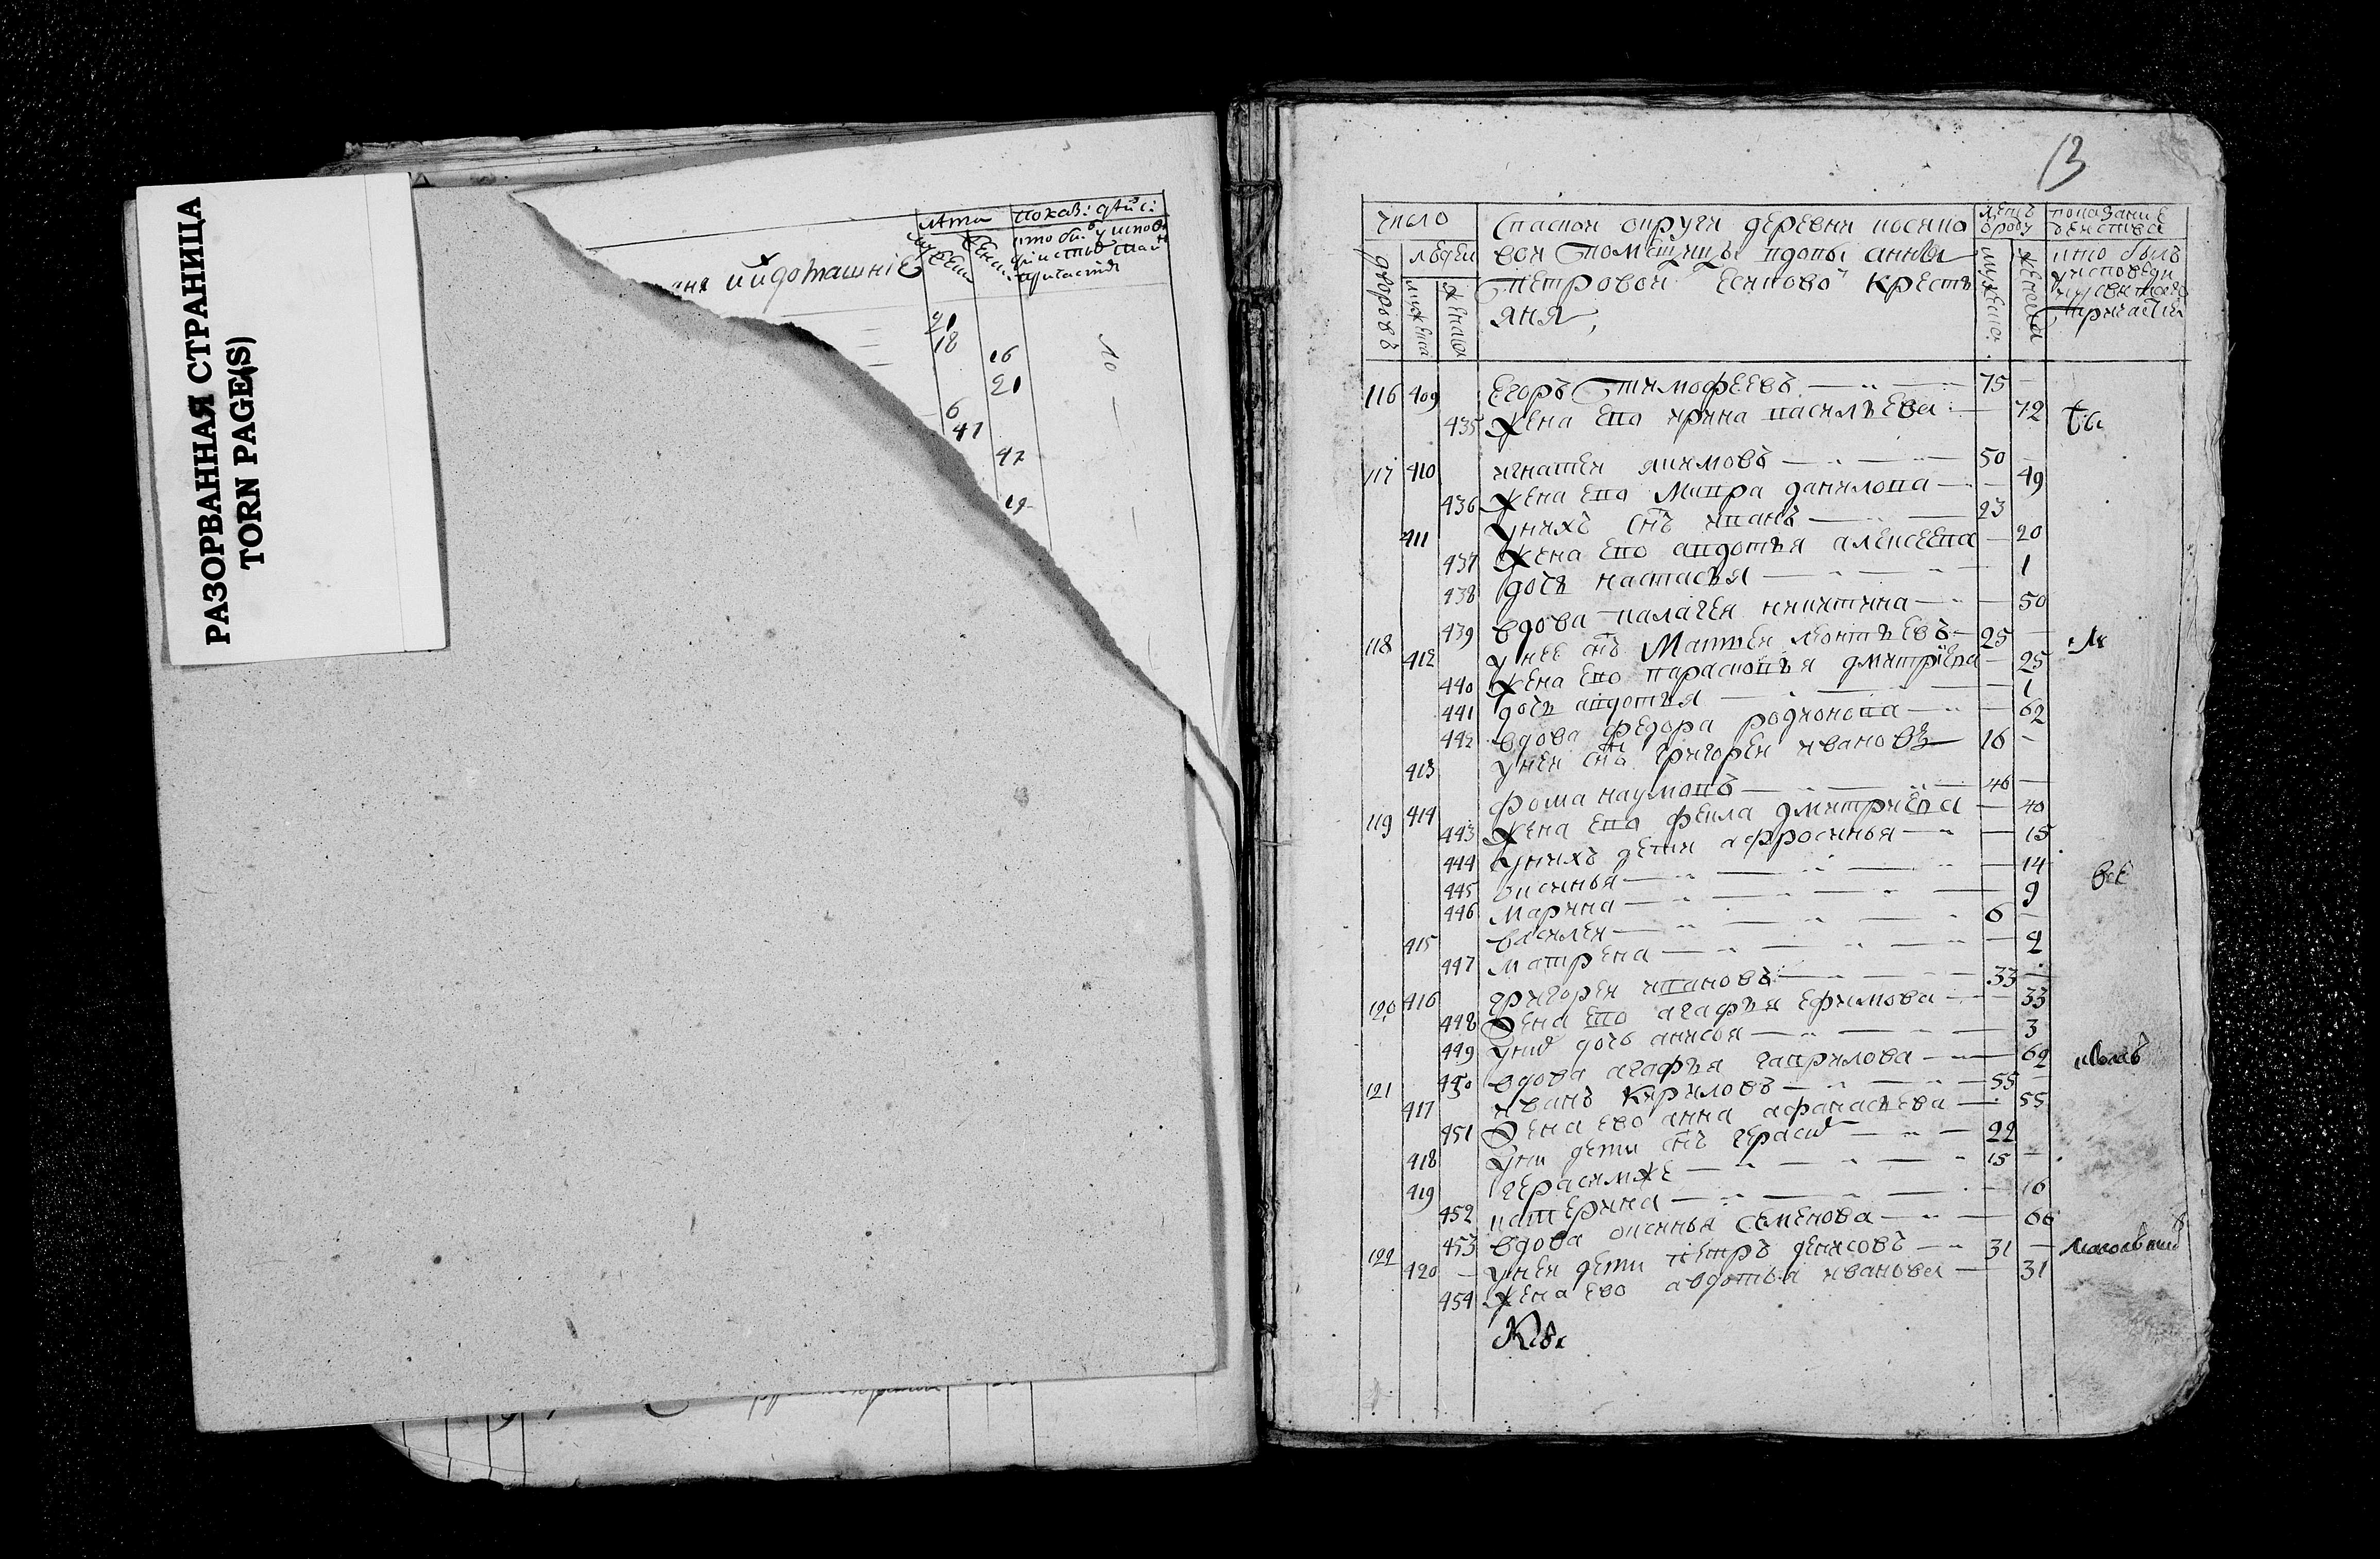 РАЗОРВАННАЯ СТРАНИЦА
TORN PAGE(S)
лѣта показ: дѣис:
ихъ домашніе
21
18
16
21
6
41
47
19
13
число
дворовъ
людеи
мужеска
женска
Спаскои округи деревни
вои помещицы вдовы анны
петровои крестья
яня
летъ
мужеска
женска
показание
кто былъ
у исповеди
причастия
116 409 Егоръ тимофеевъ 75
435 жена ево ирина василъева 72
117 410 игнатеи якимовъ 50
436 жена ево мавра данилова 49
411 у нихъ снъ иванъ 23
437 жена ево авдотья алексеева 20
438 дочь настасья 1
439 вдова палагея никитина 50
118 412 у нее снъ матвеи леонтьевъ 25
440 жена ево парасковья дмитриева 25
441 дочь авдотья 1
442 вдова федора родионова 62
413 у неи снъ григореи ивановъ 16
119 414 фома наумовъ 46
443 жена ево фекла дмитриева 40
444 у нихъ дети афросинья 15
445 оксинья 14
446 марина 9
415 василеи 6
447 матрена 2
все
120 416 григореи ивановъ 33
448 жена ево агафья ефимова 33
449 у них дочь анисья 3
450 вдова агафья гаврилова 62
121 417 иванъ кириловъ 55
451 жена ево анна афанасьева 55
418 у них дети снъ герасим 22
419 герасим же 15
452 катерина 16
453 вдова оксинья семенова 66
122 420 у неи дети петръ денисовъ 31
454 жена ево авдотья иванова 31